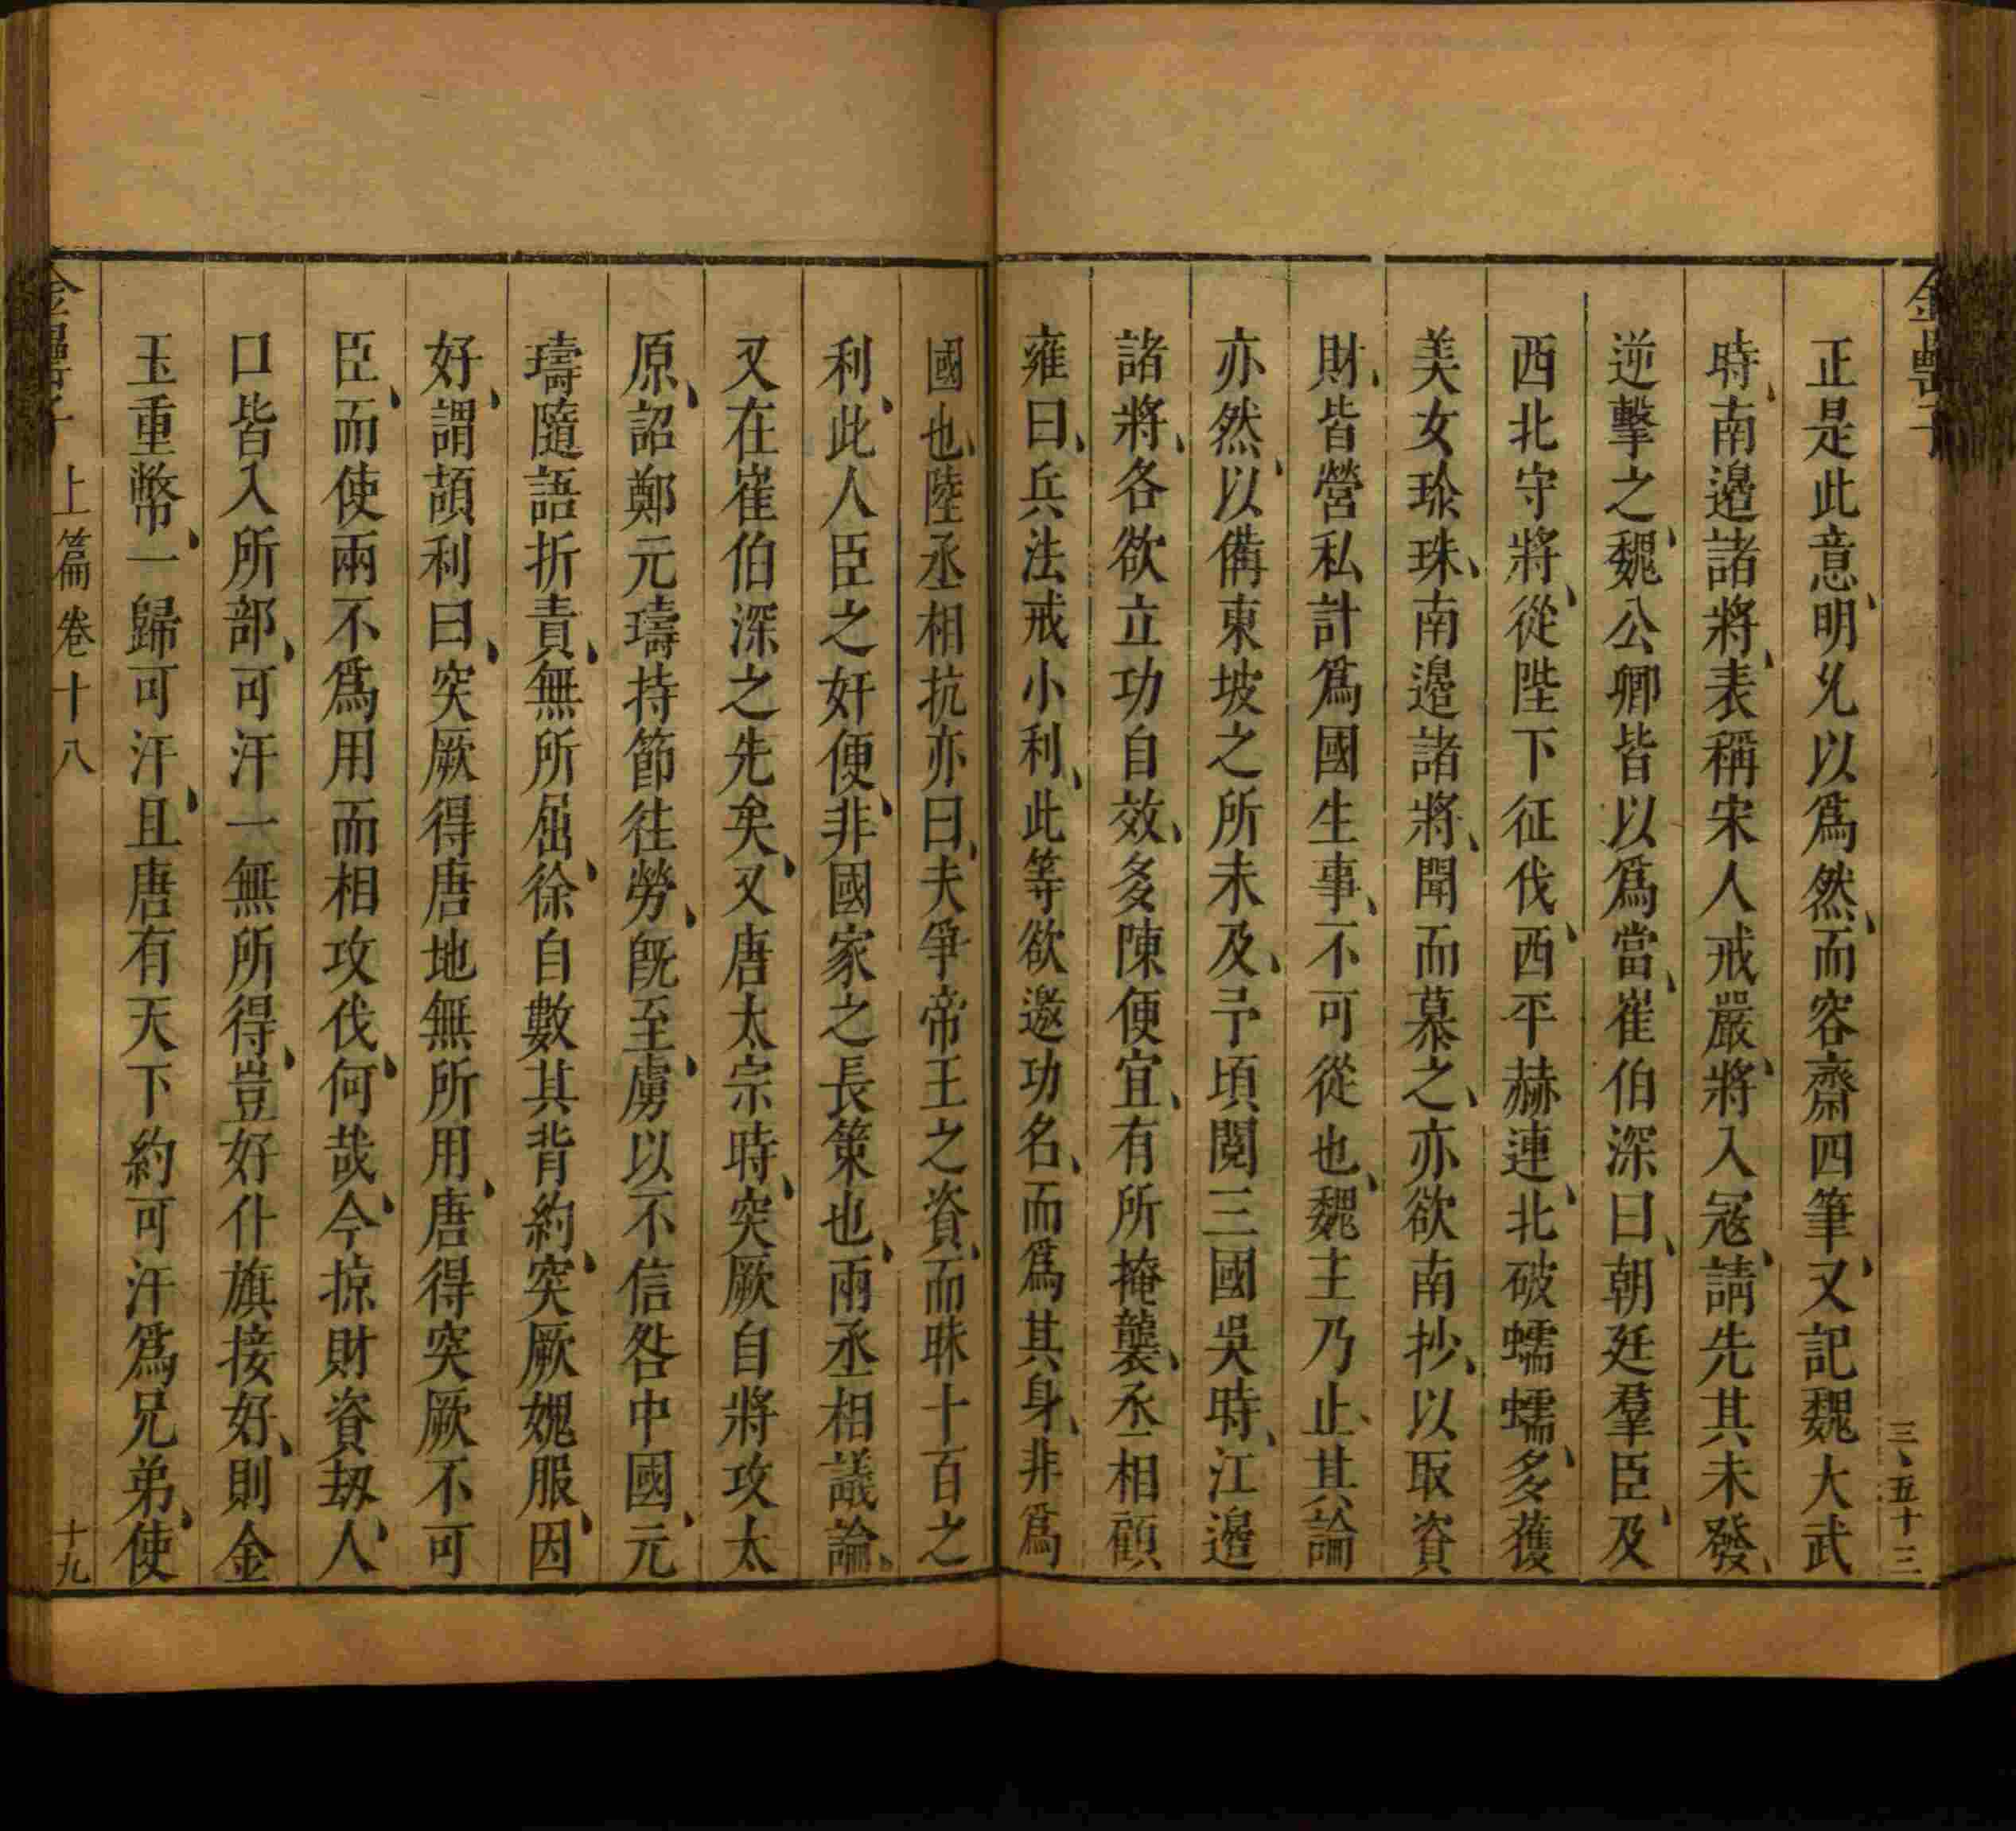 三五十三
正是此意、明允以爲然、而容齋四筆、又記魏大武
時、南邊諸將、表稱宋人戒嚴、將入寇、請先其未發、
逆擊之、魏公卿皆以爲當、崔伯深曰、朝廷羣臣、及
西北守將、從陛下征伐、西平赫連、北破蠕蠕、多獲
美女珍珠、南邊諸將、聞而慕之、亦欲南抄、以取資
財、皆營私計爲國生事、不可從也、魏主乃止、其論
亦然、以備東坡之所未及、予頃閱三國吳時、江邊
諸將、各欲立功自效、多陳便宜、有所掩襲、丞相顧
雍曰、兵法戒小利、此等欲邀功名、而爲其身、非爲
國也、陸丞相抗亦曰、夫爭帝王之資、而昧十百之
利、此人臣之奸便、非國家之長策也、兩丞相議論、
又在崔伯深之先矣、又唐太宗時、突厥自將攻太
原、詔鄭元璹持節往勞、旣至、虜以不信咎中國、元
璹隨語折責、無所屈、徐自數其背約、突厥媿服、因
好、謂頡利曰、突厥得唐地無所用、唐得突厥不可
臣、而使兩不爲用而相攻伐、何哉、今掠財資劫人、
口皆入所部、可汗一無所得、豈好仆旗接好、則金
玉重幣、一歸可汗、且唐有天下約可汗爲兄弟、使
上篇卷十八
十九